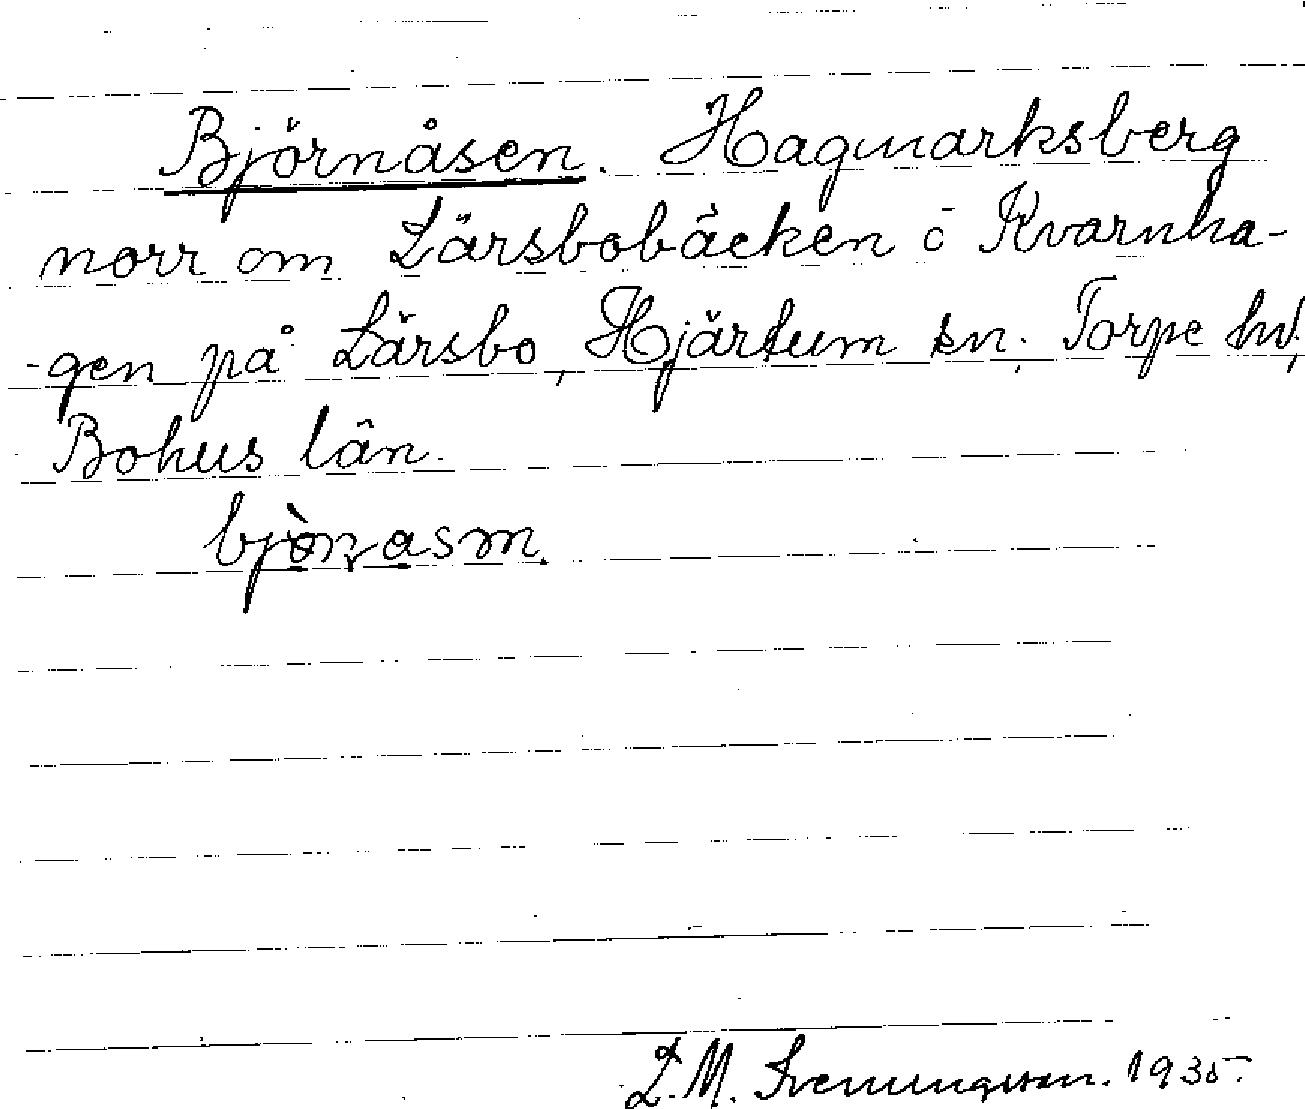 Björnåsen. Hagmarksberg
norr om Lärsbobäcken i Kvarnha-
-gen på Lärsbo, Hjärtum sn. Torpe hd,
Bohus län.
bjònasm.
L. M. Svenungsson. 1935.